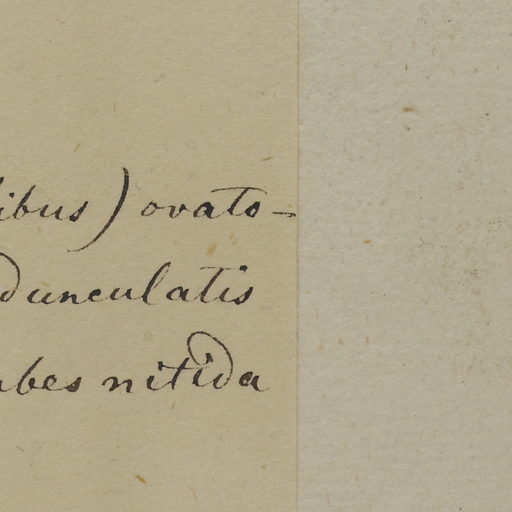 ibus) ovato-
dunculatis
bes nitida